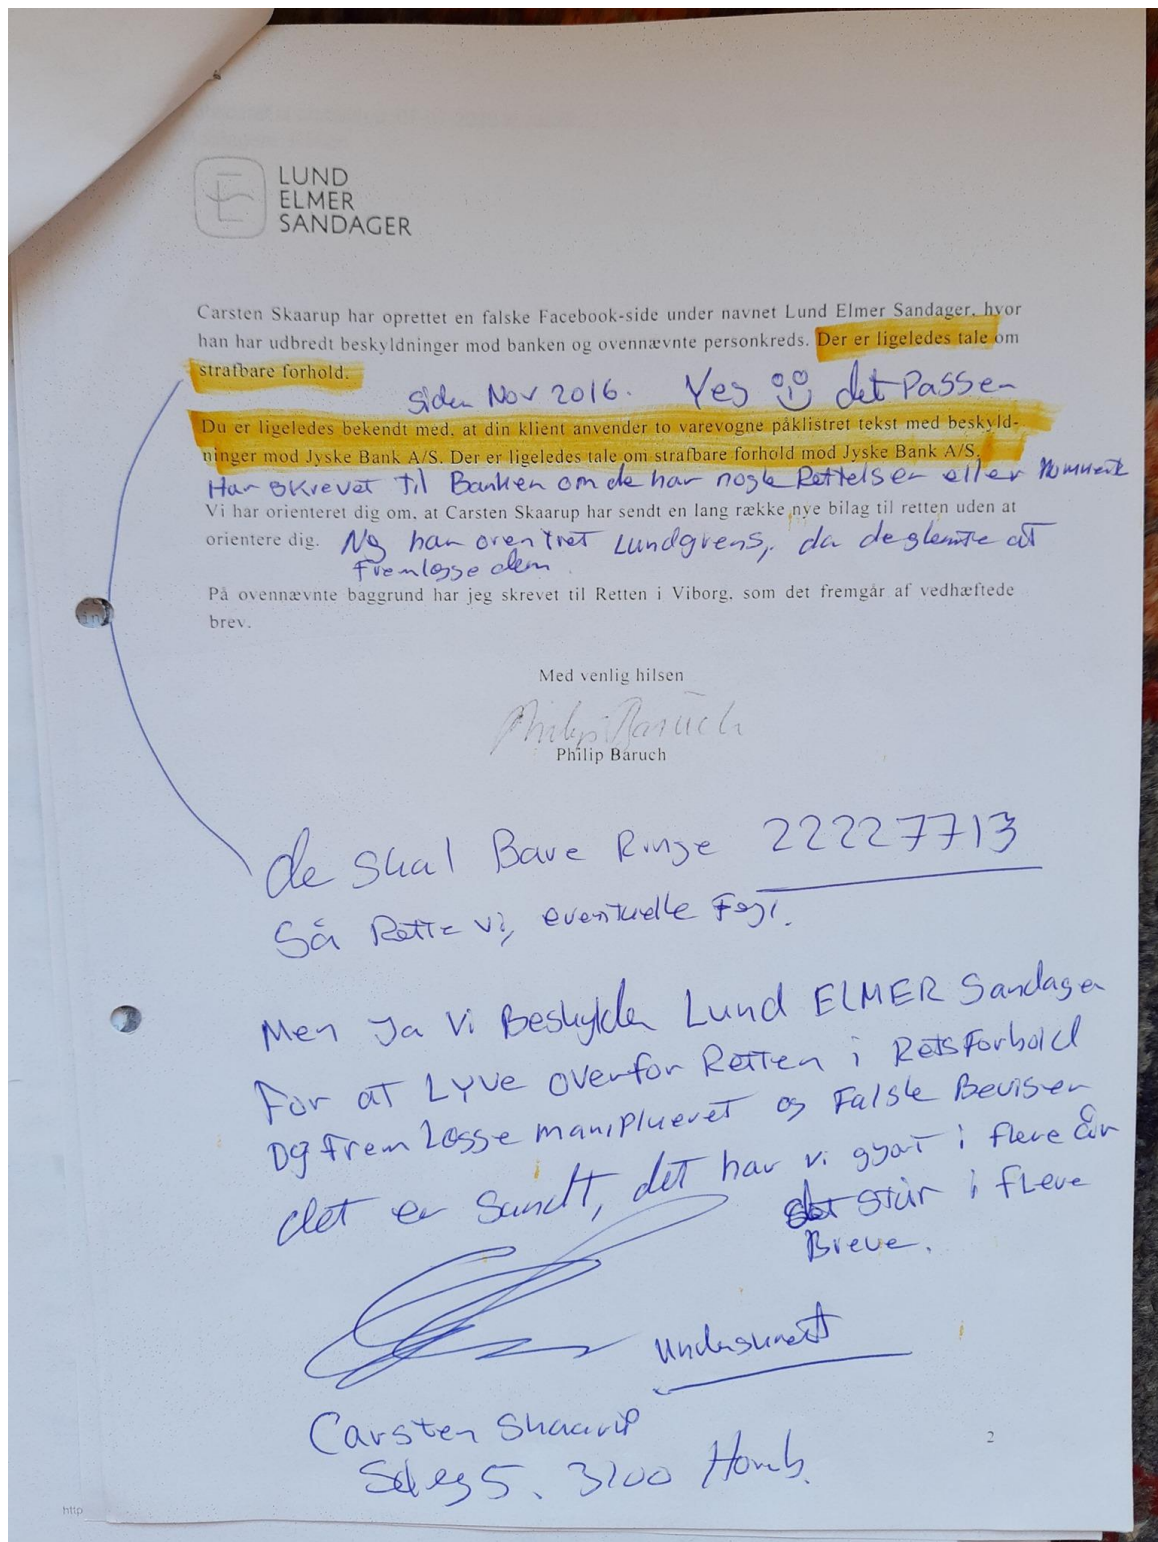 LUND
ELMER
SANDAGER
Carsten Skaarup har oprettet en falske Facebook-side under navnet Lund Elmer Sandager, hvor
han har udbredt beskyldninger mod banken og ovennævnte personkreds. Der er ligeledes tale om
strafbare forhold.
siden Nov 2016. Yes det Passer
Du er ligeledes bekendt med, at din klient anvender to varevogne påklistret tekst med beskyld-
ninger mod Jyske Bank A/S. Der er ligeledes tale om strafbare forhold mod Jyske Bank A/S.
Har skrevet til Banken om de har nogle Rettelser eller
Vi har orienteret dig om, at Carsten Skaarup har sendt en lang række nye bilag til retten uden at
orientere dig. Nej han orentret Lundgrens, da de glemte at
fremlægge dem.
På ovennævnte baggrund har jeg skrevet til Retten i Viborg, som det fremgår af vedhæftede
brev.
Med venlig hilsen
Philip Baruch
Philip Baruch
de skal Bare Ringe 22227713
Så Rette vi, eventuelle Fejl.
Men Ja Vi Beskylder Lund ELMER Sandager
For at LYVE overfor Retten i Retsforhold
Og frem Lægge maniplueret og Falske Beviser
det er Sandt, det har vi gjort i flere år
det står i fLere
Breve.
Underskrevet
Carsten Skaarup
5. 3100 Hornb.
2
http